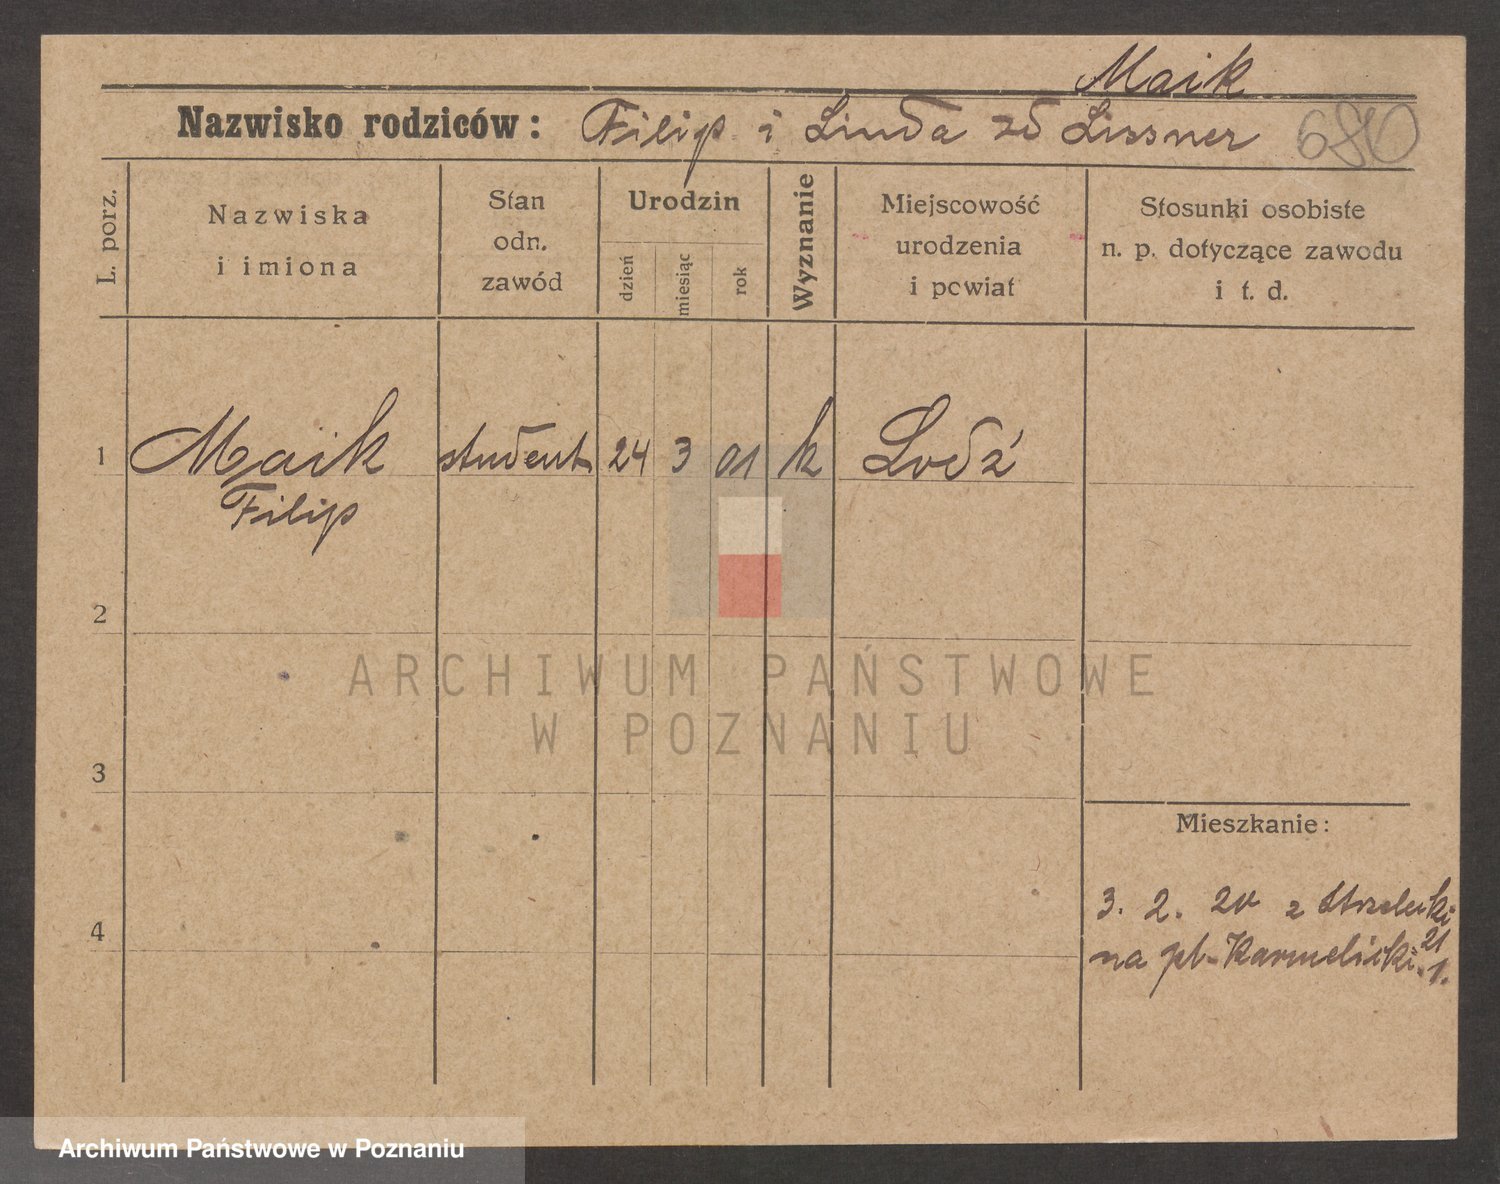 Maik
Nazwisko rodziców: Filip i Linda zd Lissner 680
L. porz.
Nazwiska
i imiona
Stan
odn.
zawód
Urodzin
dzień
miesiąc
rok
Wyznanie
Miejscowość
urodzenia
i powiat
Stosunki osobiste
n. p. dotyczące zawodu
i t. d.
1 Maik student 24 3 01 k Lodź
Filip
2
ARCHIWUM PAŃSTWOWE
W POZNANIU
3
Mieszkanie:
3. 2. 20 z Strzelecki
4
na pl. Karmelicki 21
1.
Archiwum Państwowe w Poznaniu